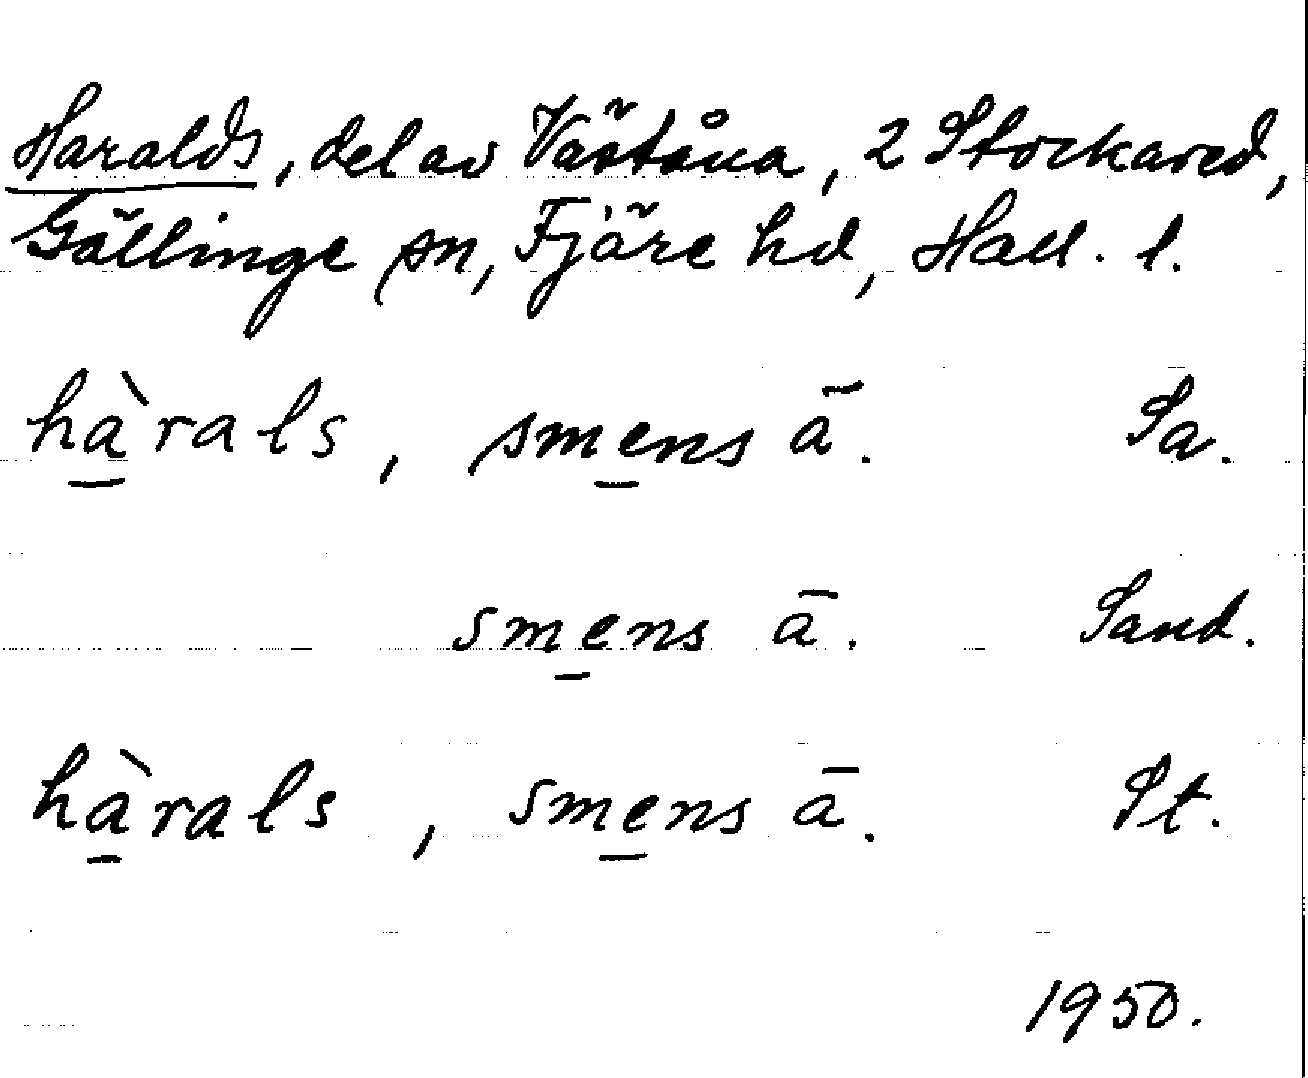 Haralds, del av Väståna, 2 Stockared,
Gällinge sn, Fjäre hd, Hall. l.
hàrals, smens ā. Sa.
smens ā. Sand.
hàrals, smens ā. St.
1950.